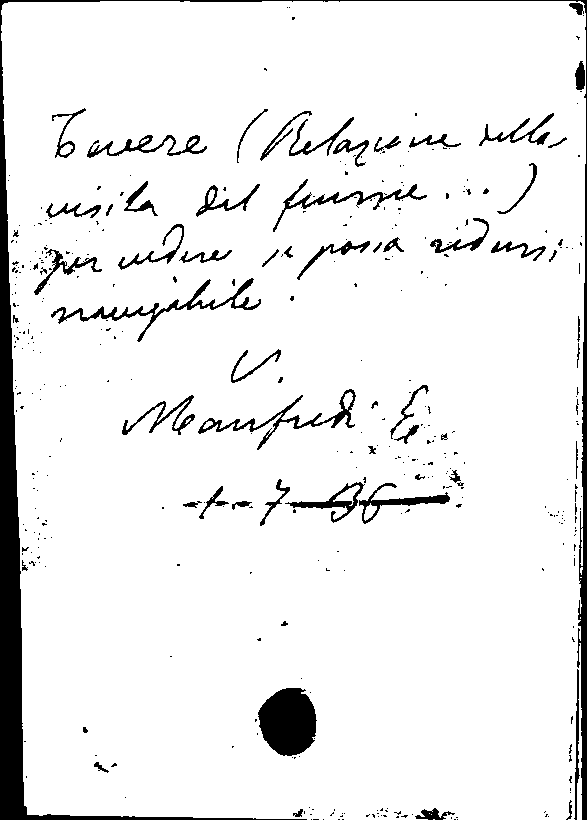 Tevere (Relazione della
visita del fiume...)
per vedere se possa ridursi
navigabile.
V.
Manfredi E
1-7-36